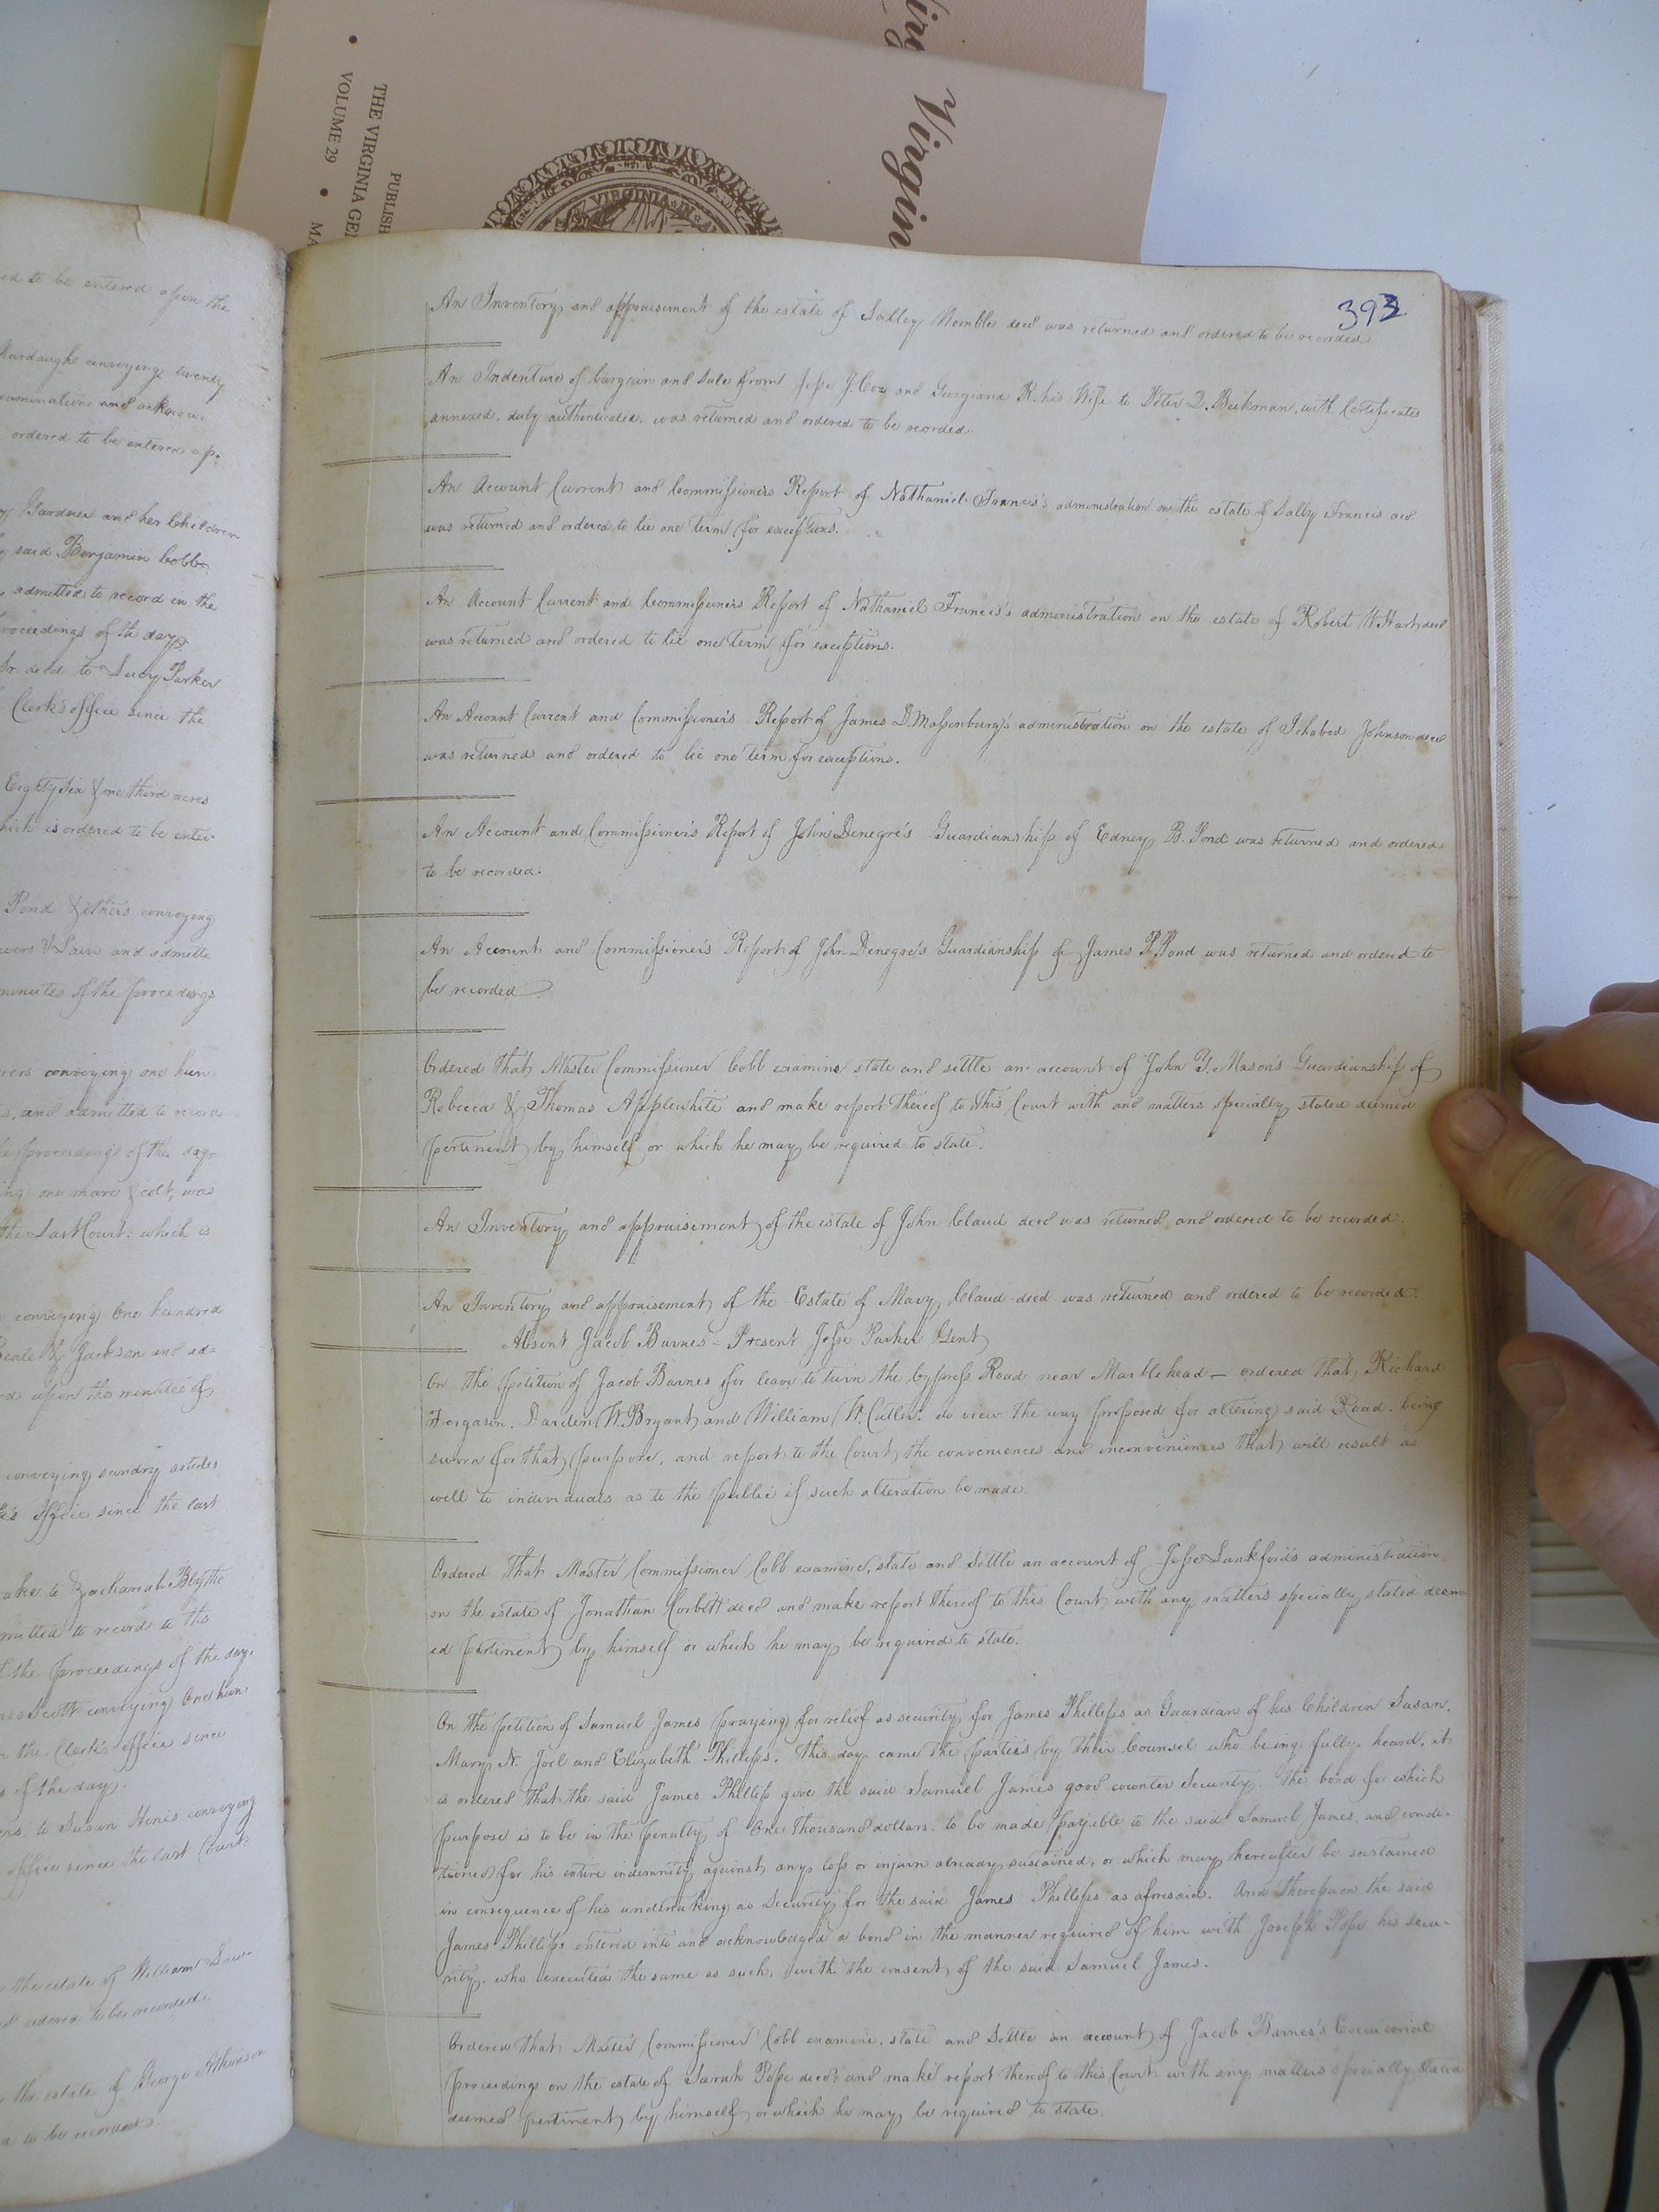 Virgin
PUBLISH
THE VIRGINIA GE
VOLUME 29 • MA
VIRGINIA
393
ed to be entered upon the
conveying twenty
examination and acknow-
ordered to be entered up-
Gardner and her Children
said Benjamin Cobb
admitted to record in the
proceedings of the day
deed to Lucy Parker
Clerk's office since the
Eighty six & one third acres
which is ordered to be enter-
Pond & others conveying
and admitte
minutes of the proceedings
conveying one hun-
and admitted to record
proceedings of the day
one mare & colt, was
the Last Court: which is
conveying One hundred
& Jackson and ad=
upon the minutes of
conveying sundry articles
office since the last
to Zachariah Blythe
mitted to record to the
the proceedings of the day.
Scott conveying One hun-
the Clerk's office since
of the day.
to Susan Hines conveying
office since the last Court:
the estate of William
ordered to be recorded.
the estate of George Atkinson
to be recorded.
An Inventory and appraisement of the estate of Salley Womble decd was returned and ordered to be recorded
An Indenture of bargain and sale from Jesse J. Cox and Georgiana R. his Wife to Peter D. Beekman, with Certificates
annexed, duly authenticated, was returned and ordered to be recorded.
An Account Current and Commissioners Report of Nathaniel Francis's administration on the estate of Sally Francis decd
was returned and ordered to lie one term for exceptions.
An Account Current and Commissioners Report of Nathaniel Francis's administration on the estate of Robert W. Hart decd
was returned and ordered to lie one term for exceptions.
An Account Current and Commissioner's Report of James D. Massenburg's administration on the estate of Ichabod Johnson decd
was returned and ordered to lie one term for exceptions.
An Account and Commissioner's Report of John Denegre's Guardianship of Edney B. Pond was returned and ordered
to be recorded.
An Account and Commissioner's Report of John Denegre's Guardianship of James P. Pond was returned and ordered to
be recorded.
Ordered that Master Commissioner Cobb examine state and settle an account of John Y. Mason's Guardianship of
Rebecca & Thomas Applewhite and make report thereof to this Court with and matters specially stated deemed
pertinent by himself or which he may be required to state.
An Inventory and appraisement of the estate of John Claud decd was returned and ordered to be recorded.
An Inventory and appraisement of the Estate of Mary Claud decd was returned and ordered to be recorded.
Absent Jacob Barnes = Present Jesse Parker Gent
On the petition of Jacob Barnes for leave to turn the Cypress Road near Marblehead — ordered that Richard
Fergason, Darden W. Bryant and William W. Cutler, do view the way proposed for altering said Road, being
sworn for that purpose, and report to the Court the conveniences and inconveniences that will result as
well to individuals as to the public if such alteration be made.
Ordered that Master Commissioner Cobb examine, state and settle an account of Jesse Lankford's administration
on the estate of Jonathan Corbitt decd and make report thereof to this Court with any matters specially stated deem-
ed pertinent by himself or which he may be required to state.
On the petition of Samuel James praying for relief as security for James Phillips as Guardian of his Children Susan,
Mary N. Joel and Elizabeth Phillips. This day came the parties by their Counsel who being fully heard, it
is ordered that the said James Phillips give the said Samuel James good counter security. The bond for which
purpose is to be in the penalty of One thousand dollars, to be made payable to the said Samuel James, and condi-
tioned for his entire indemnity against any loss or injury already sustained, or which may hereafter be sustained
in consequence of his undertaking as Security for the said James Phillips as aforesaid. And thereupon the said
James Phillips entered into and acknowledged a bond in the manner required of him with Joseph Pope his secu-
rity, who executed the same as such, with the consent of the said Samuel James.
Ordered that Master Commissioner Cobb examine, state and settle an account of Jacob Barnes's Executorial
proceedings on the estate of Sarah Pope decd and make report thereof to this Court with any matters specially stated
deemed pertinent by himself or which he may be required to state.